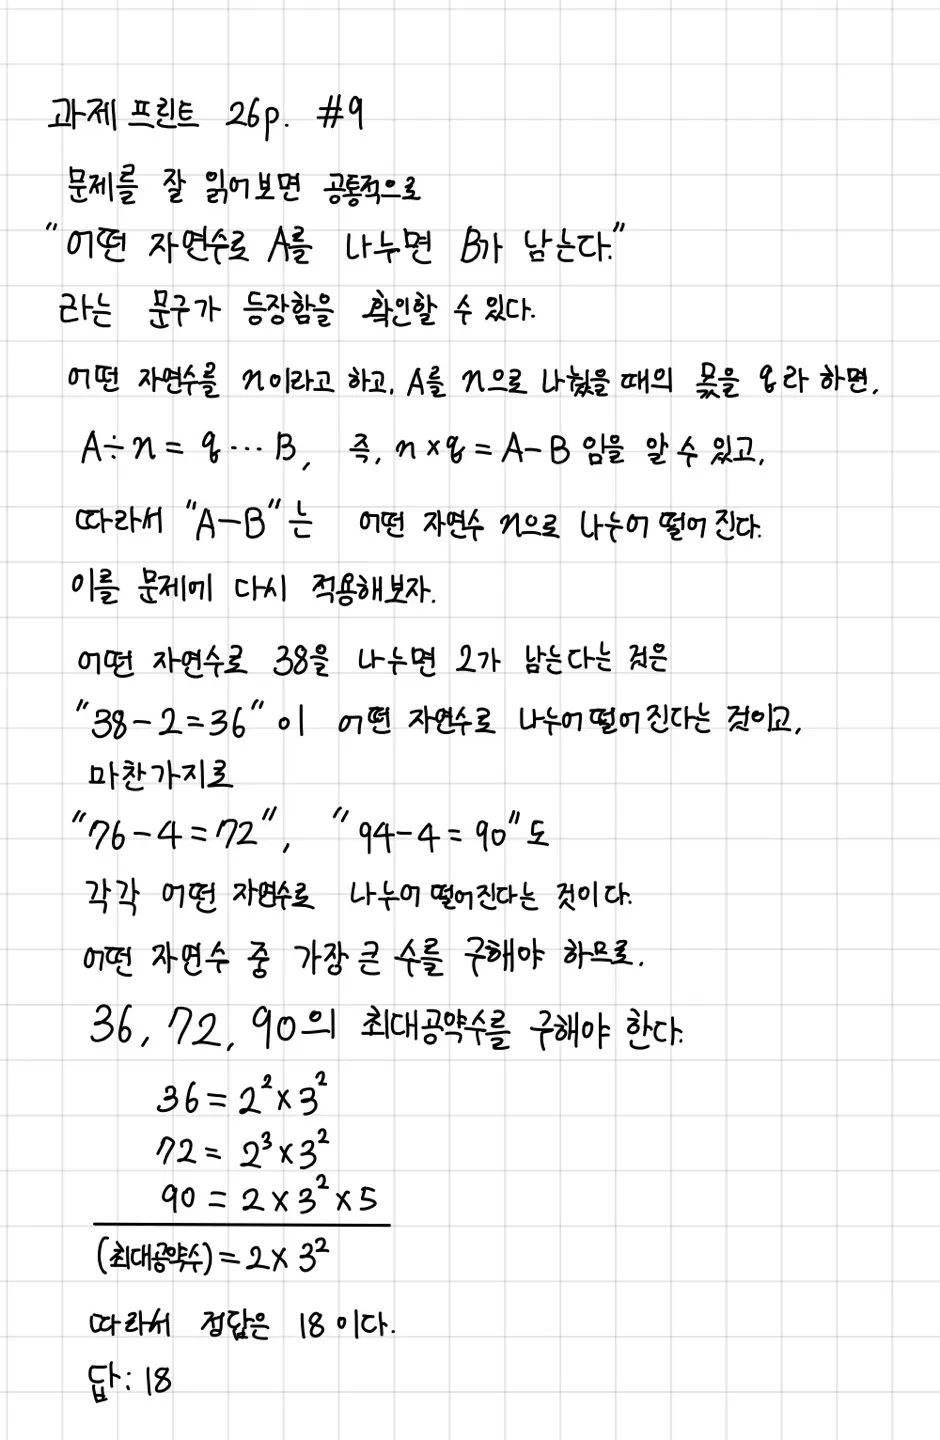 과제 프린트 26p. #9
문제를 잘 읽어보면 공통적으로
"어떤 자연수로 A를 나누면 B가 남는다."
라는 문구가 등장함을 확인할 수 있다.
어떤 자연수를 n이라고 하고, A를 n으로 나눴을 때의 몫을 q라 하면,
A÷n = q … B, 즉, n×q = A-B 임을 알 수 있고,
따라서 "A-B"는 어떤 자연수 n으로 나누어 떨어진다.
이를 문제에 다시 적용해보자.
어떤 자연수로 38을 나누면 2가 남는다는 것은
"38-2=36"이 어떤 자연수로 나누어 떨어진다는 것이고,
마찬가지로
"76-4=72", "94-4=90"도
각각 어떤 자연수로 나누어 떨어진다는 것이다.
어떤 자연수 중 가장 큰 수를 구해야 하므로,
36, 72, 90의 최대공약수를 구해야 한다.
36 = 2²×3²
72 = 2³×3²
90 = 2×3²×5
(최대공약수) = 2×3²
따라서 정답은 18이다.
답: 18